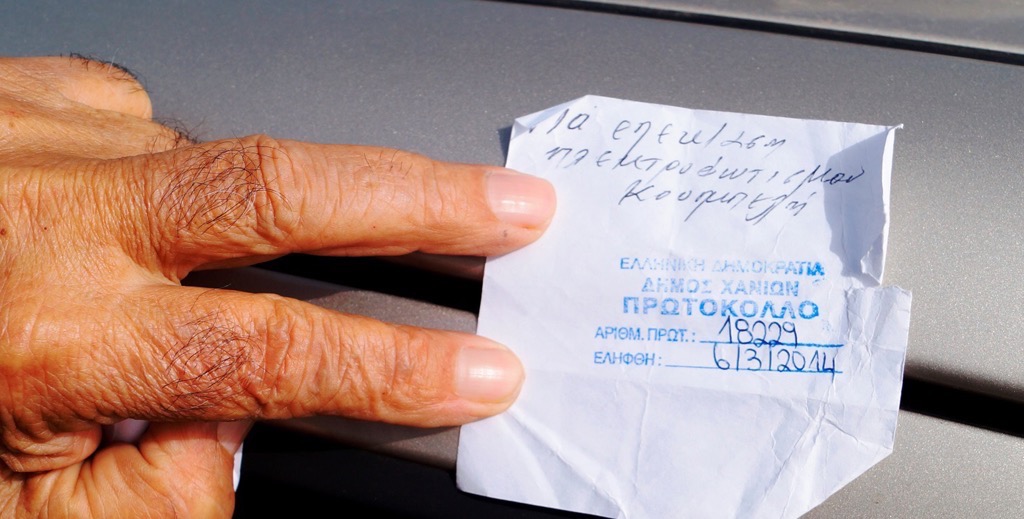 Για επέκταση
ηλεκτροφωτισμού
Κουμπελή
ΕΛΛΗΝΙΚΗ ΔΗΜΟΚΡΑΤΙΑ
ΔΗΜΟΣ ΧΑΝΙΩΝ
ΠΡΩΤΟΚΟΛΛΟ
ΑΡΙΘΜ. ΠΡΩΤ.: 18229
ΕΛΗΦΘΗ: 6/3/2014